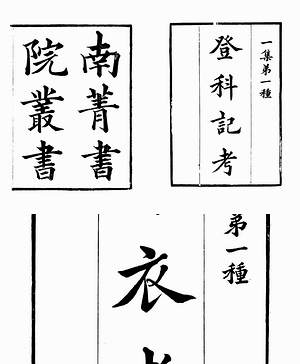 南菁書
院叢書
一集第一種
登科記考
弟一種
衣